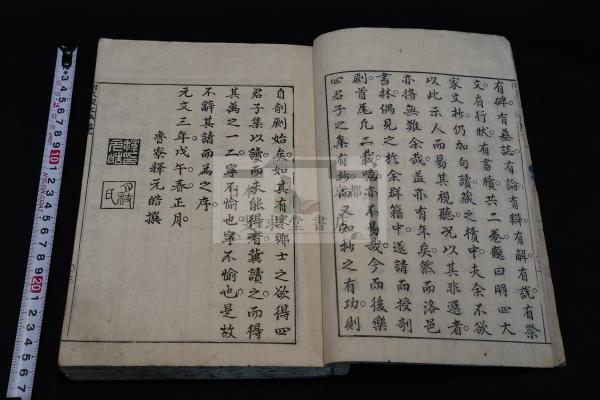 有碑有墓誌有論有辯有解有説有祭
文有行状有書牘共二卷題曰明四大
家文抄仍加句讀藏之櫝中夫余不欲
以此示人而易其視聽況以其非選者
亦將無難余哉蓋亦有年矣然而洛邑
書林偶見之於余群籍中遂請而授剞
劂首尾凡二載噫亦不易哉今而後樂
四君子之集有抄而又知抄之有功則
自剞劂始矣如其有壤鄉士之欲得四
君子集以讀而未能得者冀讀之而得
其萬之一二寧不愉也寧不愉也是故
不辭其請而為之序
元文三年戊午春正月
魯寮釋元皓撰